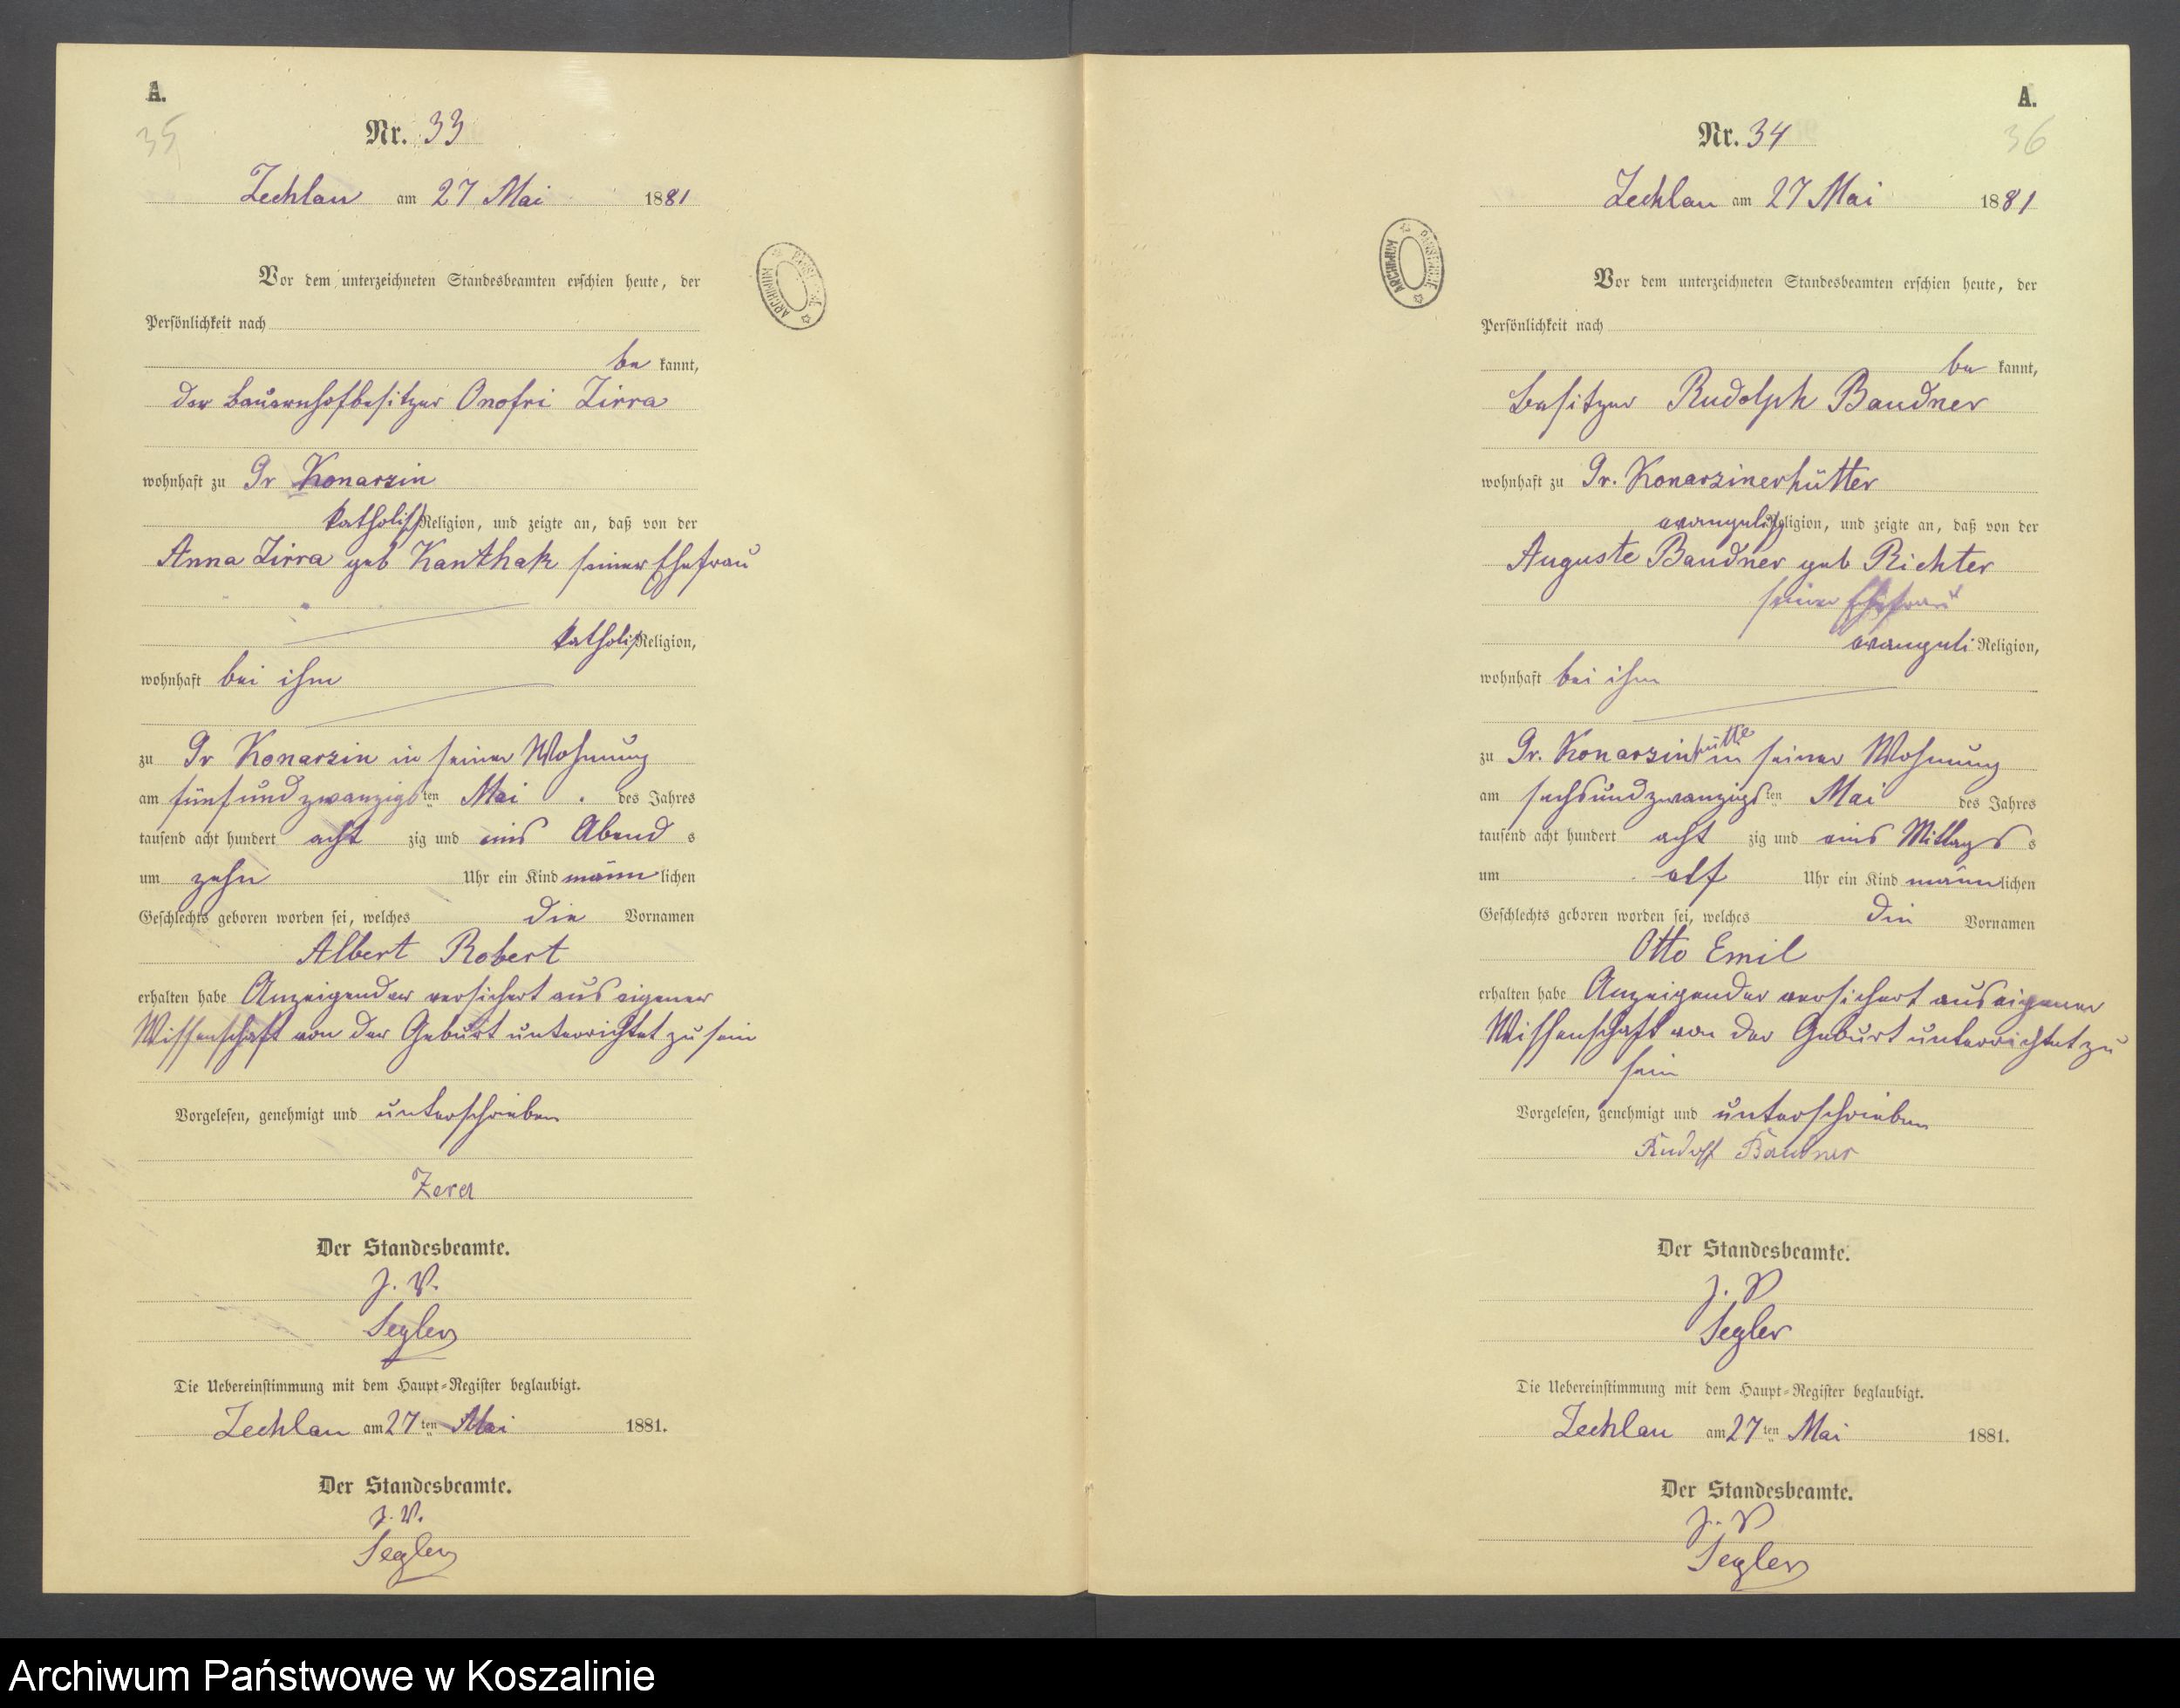 A.
35
Nr. 33
Zechlau am 27 Mai 1881
Vor dem unterzeichneten Standesbeamten erschien heute, der
Persönlichkeit nach
be kannt,
der Bauernhofbesitzer Onofri Zirra
wohnhaft zu Gr Konarzin
katholisch Religion, und zeigte an, daß von der
Anna Zirra geb Kanthak seiner Ehefrau
katholisch Religion,
wohnhaft bei ihm
zu Gr Konarzin in seiner Wohnung
am fünfundzwanzigsten Mai des Jahres
tausend acht hundert acht zig und eins Abend s
um zehn Uhr ein Kind männ lichen
Geschlechts geboren worden sei, welches die Vornamen
Albert Robert
erhalten habe Anzeigender versichert aus eigener
Wissenschaft von der Geburt unterrichtet zu sein
Vorgelesen, genehmigt und unterschrieben
Zera
Der Standesbeamte.
J. V.
Segler
Die Uebereinstimmung mit dem Haupt-Register beglaubigt.
Zechlau am 27 ten Mai 1881.
Der Standesbeamte.
J. V.
Segler
ARCHIWUM PAŃSTWOWE
A.
36
Nr. 34
Zechlau am 27 Mai 1881
Vor dem unterzeichneten Standesbeamten erschien heute, der
Persönlichkeit nach
be kannt,
Besitzer Rudolph Bandner
wohnhaft zu Gr. Konarzinerhütter
evangelisch Religion, und zeigte an, daß von der
Auguste Bandner geb Richter
seiner Ehefrau
evangeli Religion,
wohnhaft bei ihm
zu Gr. Konarzinhütte in seiner Wohnung
am sechsundzwanzigsten Mai des Jahres
tausend acht hundert acht zig und eins Mittags s
um elf Uhr ein Kind männ lichen
Geschlechts geboren worden sei, welches die Vornamen
Otto Emil
erhalten habe Anzeigender versichert aus eigener
Wissenschaft von der Geburt unterrichtet zu
sein
Vorgelesen, genehmigt und unterschrieben
Rudolf Bandner
Der Standesbeamte.
J. V
Segler
Die Uebereinstimmung mit dem Haupt-Register beglaubigt.
Zechlau am 27 ten Mai 1881.
Der Standesbeamte.
J. V
Segler
ARCHIWUM PAŃSTWOWE
Archiwum Państwowe w Koszalinie